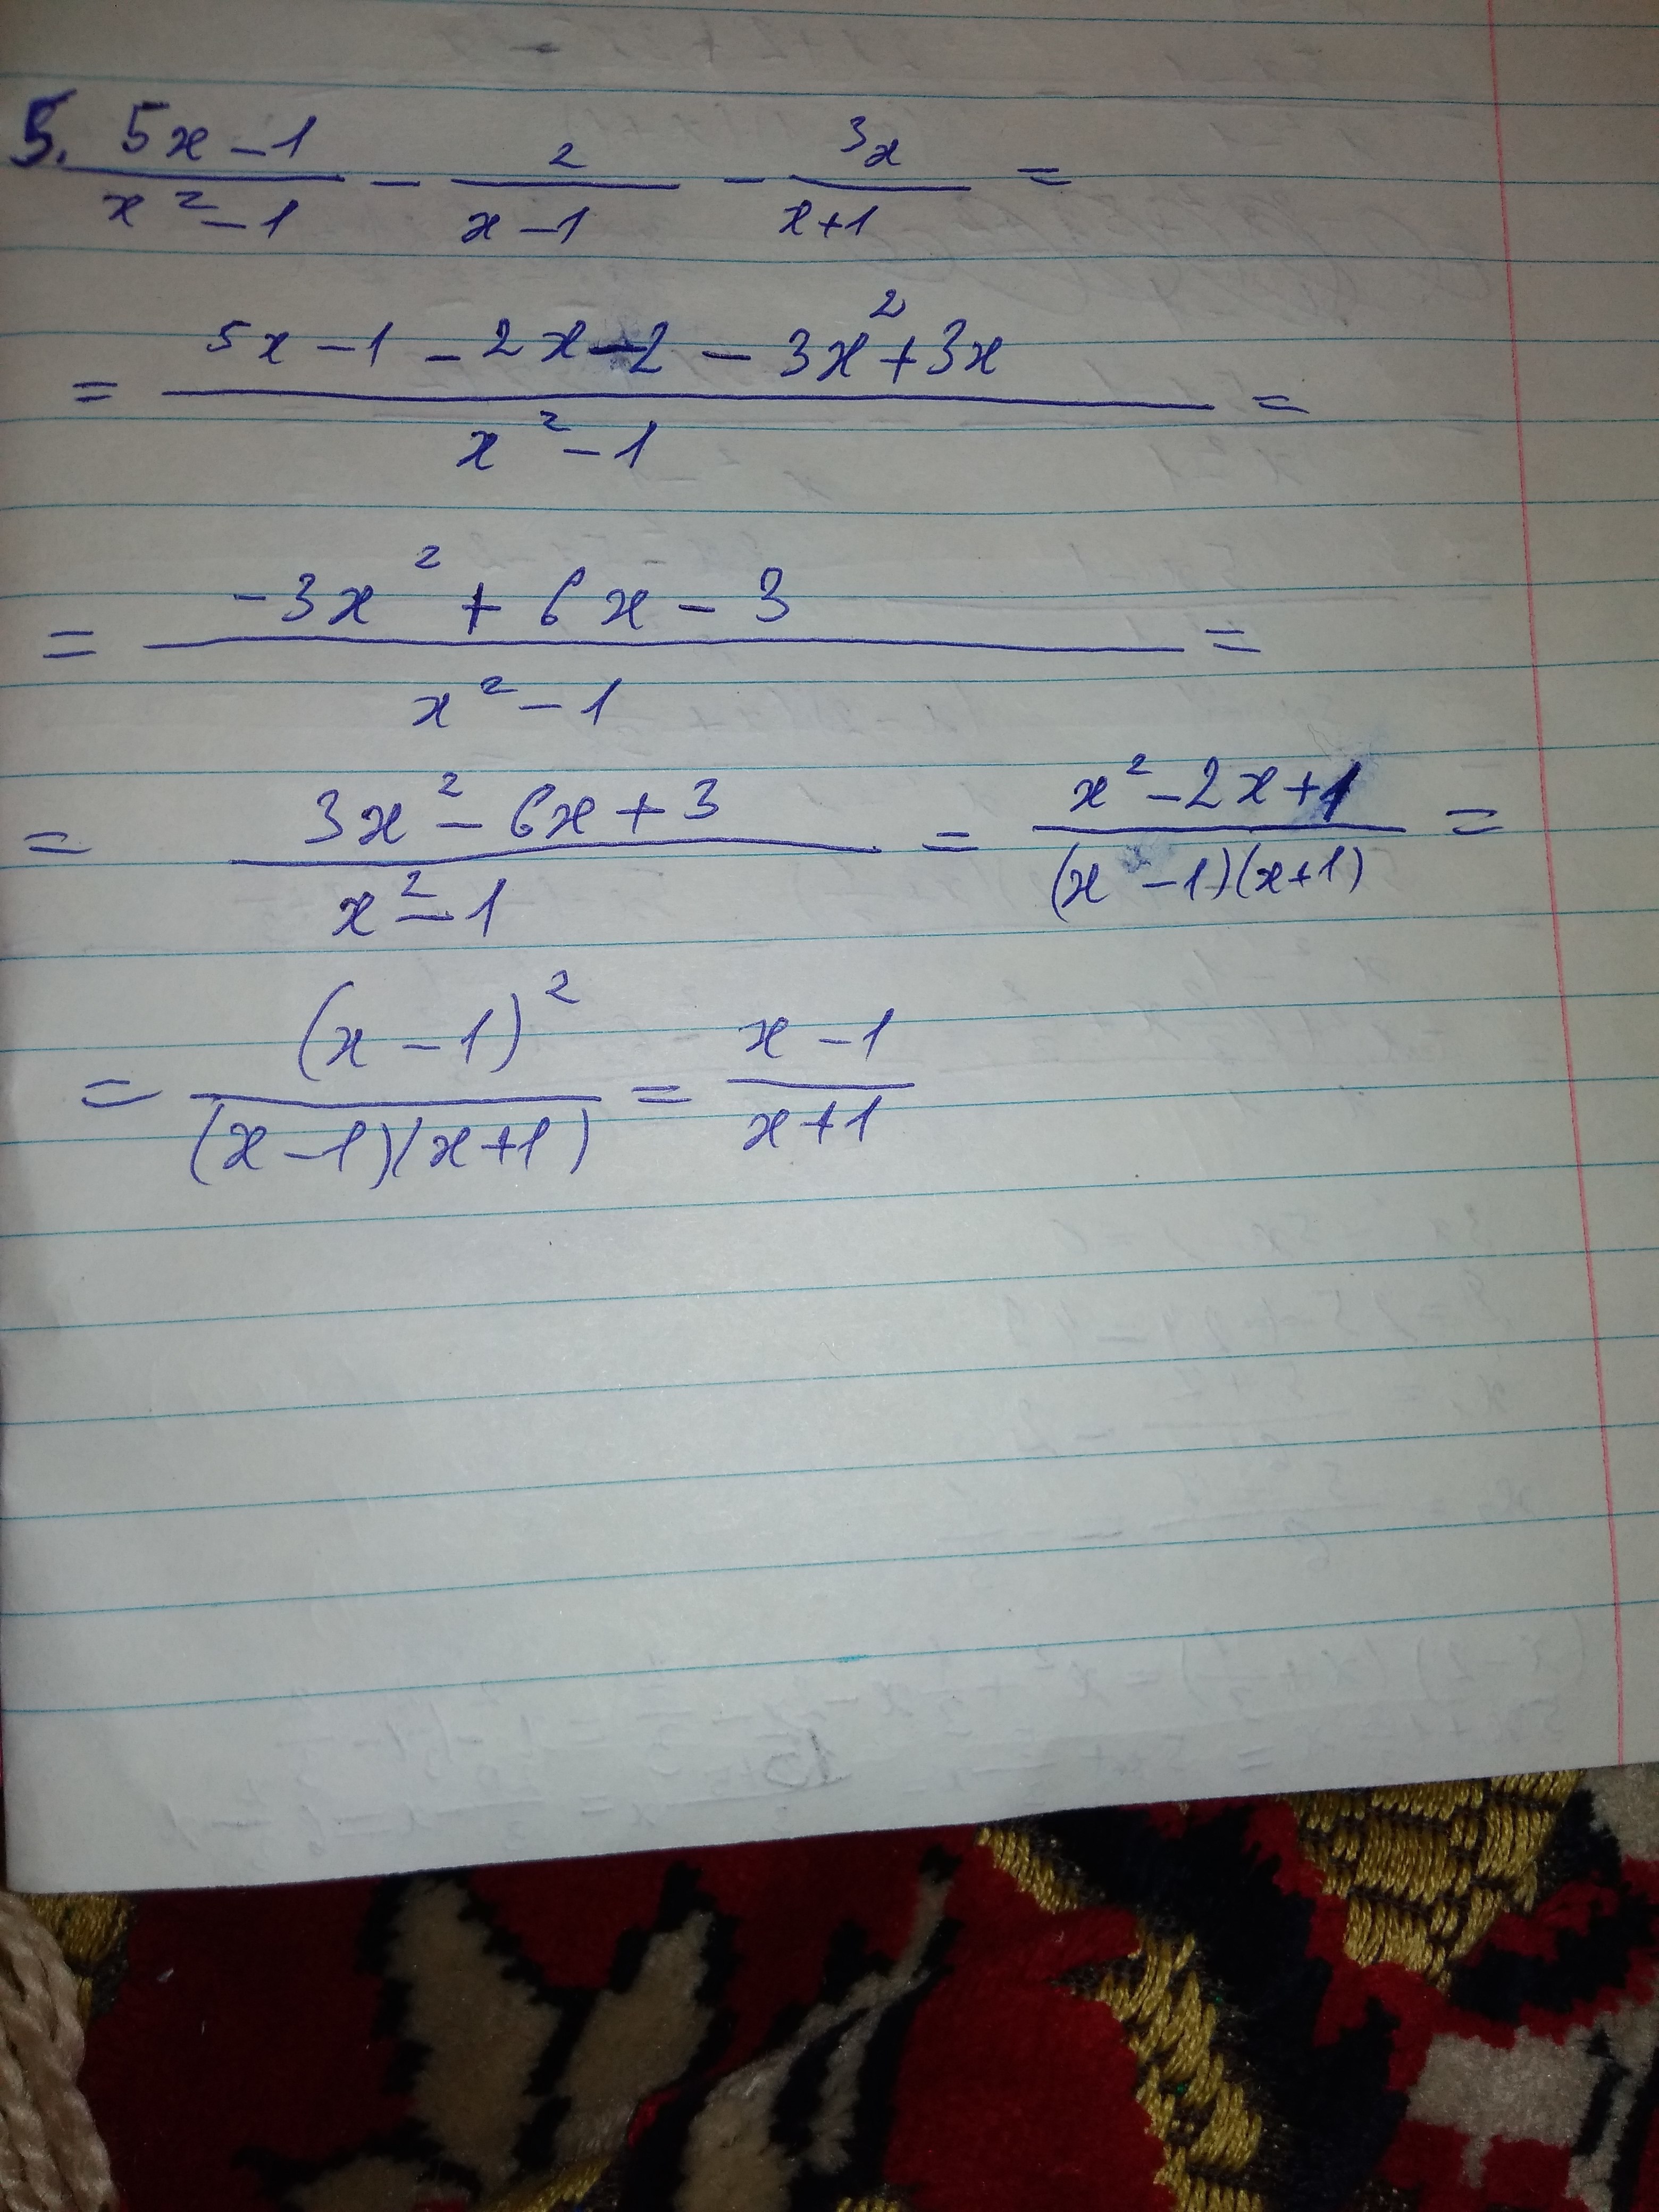 5. (5x-1)/(x²-1) - 2/(x-1) - 3x/(x+1) =
= (5x-1-2x-2-3x²+3x)/(x²-1) =
= (-3x²+6x-3)/(x²-1) =
= (3x²-6x+3)/(x²-1) = (x²-2x+1)/((x-1)(x+1)) =
= (x-1)²/((x-1)(x+1)) = (x-1)/(x+1)